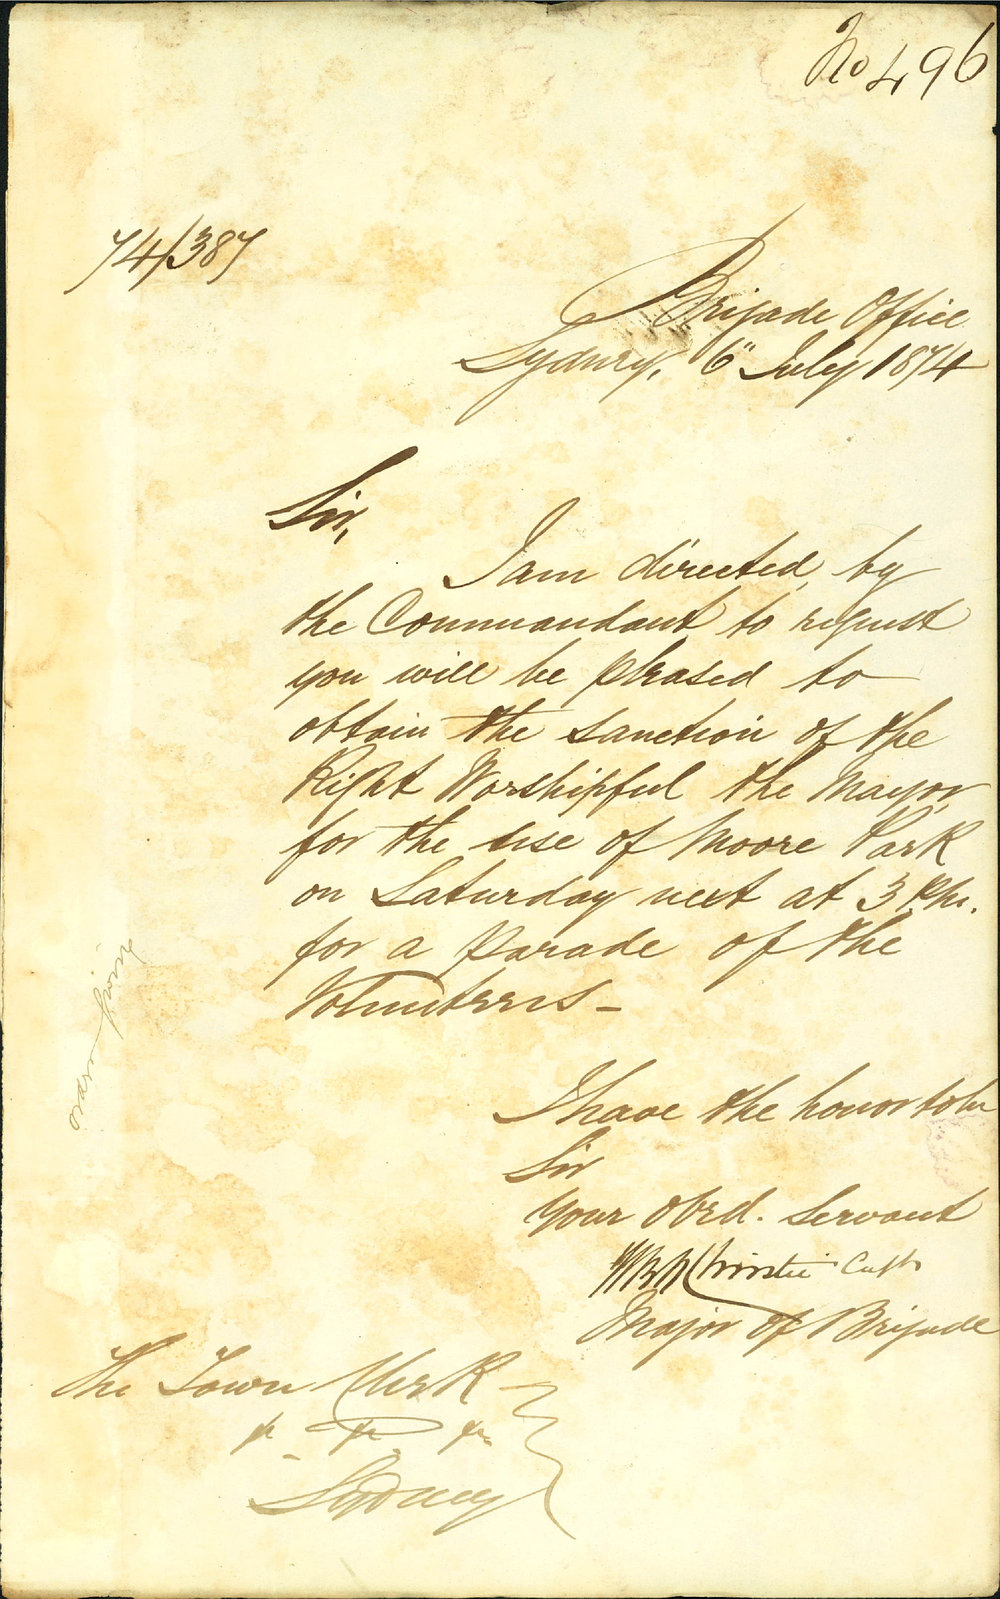 No 496
74/387
Brigade Office
Sydney, 6" July 1874
Sir,
I am directed by
the Commandant to request
you will be pleased to
obtain the sanction of the
Right Worshipful the Mayor
for the use of Moore Park
on Saturday next at 3 P.M.
for a parade of the
Volunteers –
I have the honor to be
Sir
Your obed. Servant
Christie Captn
Major of Brigade
The Town Clerk
&c. &c. &c.
Sydney